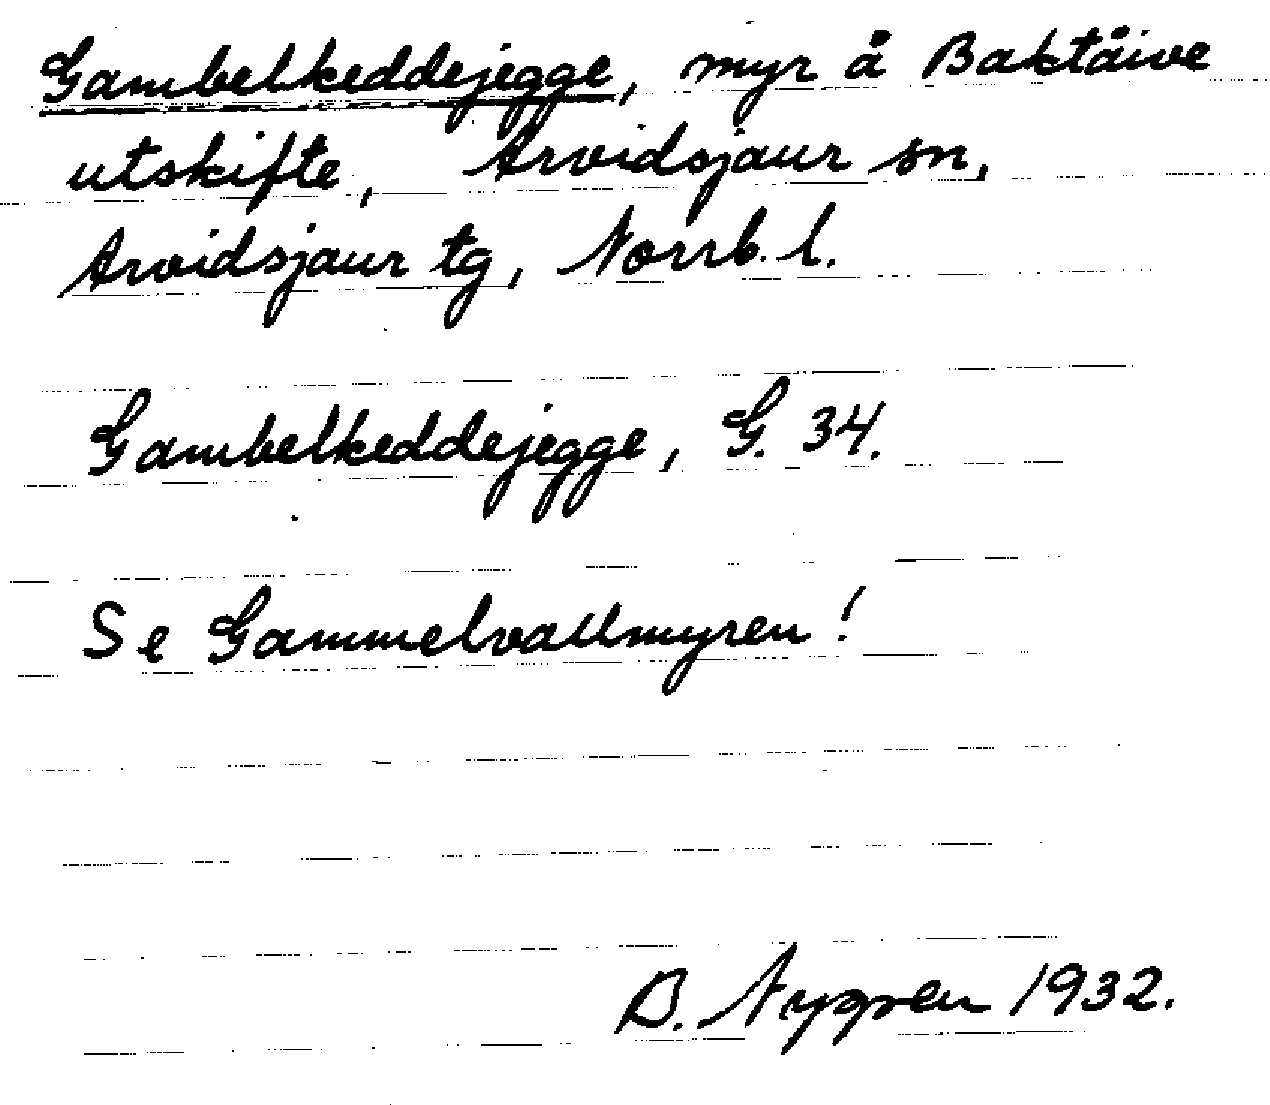 Gambelkeddejegge, myr å Baktåive
utskifte, Arvidsjaur sn,
Arvidsjaur tg, Norrb. l.
Gambelkeddejegge, G. 34.
Se Gammelvallmyren!
B. Nygren 1932.